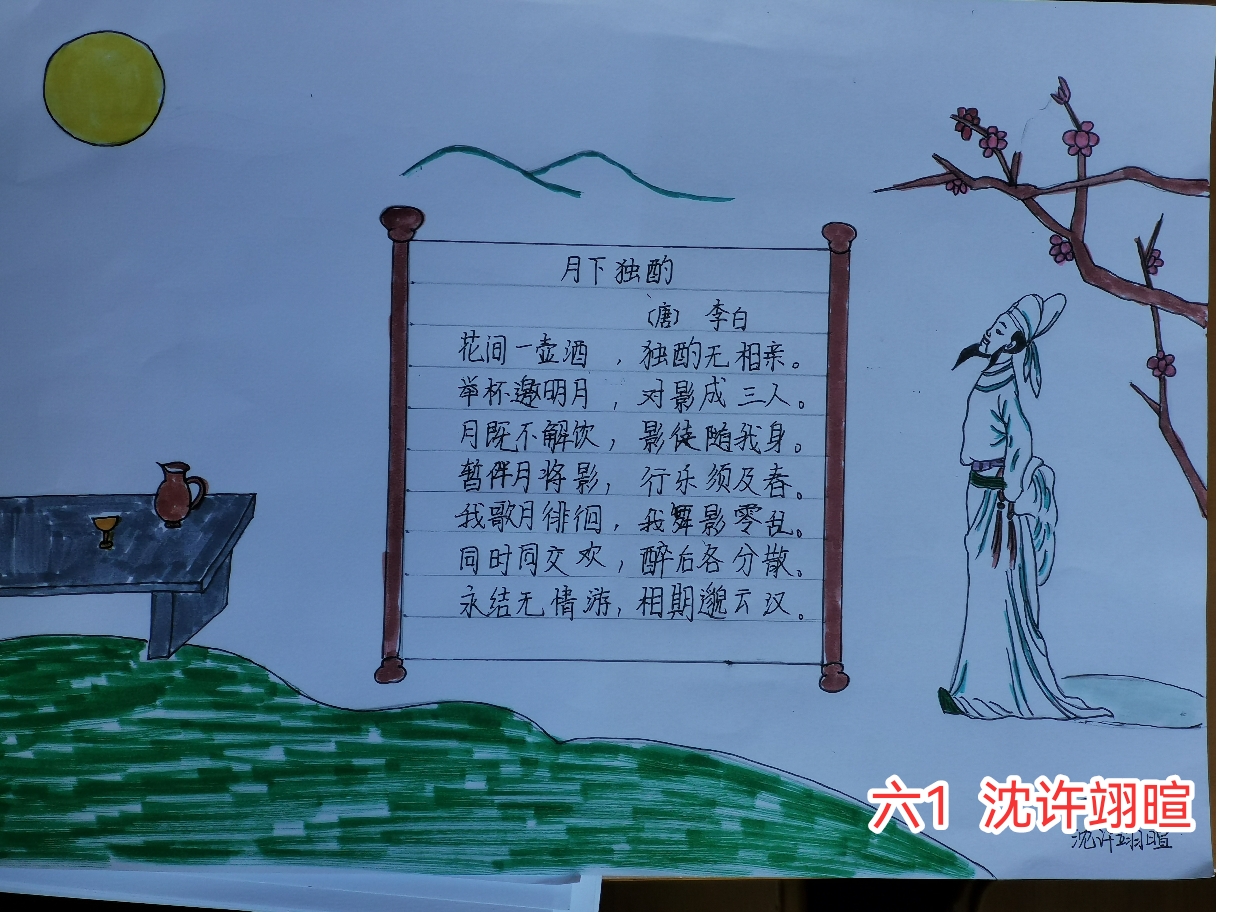 月下独酌
(唐) 李白
花间一壶酒，独酌无相亲。
举杯邀明月，对影成三人。
月既不解饮，影徒随我身。
暂伴月将影，行乐须及春。
我歌月徘徊，我舞影零乱。
同时同交欢，醉后各分散。
永结无情游，相期邈云汉。
六1 沈许翊暄
沈许翊暄